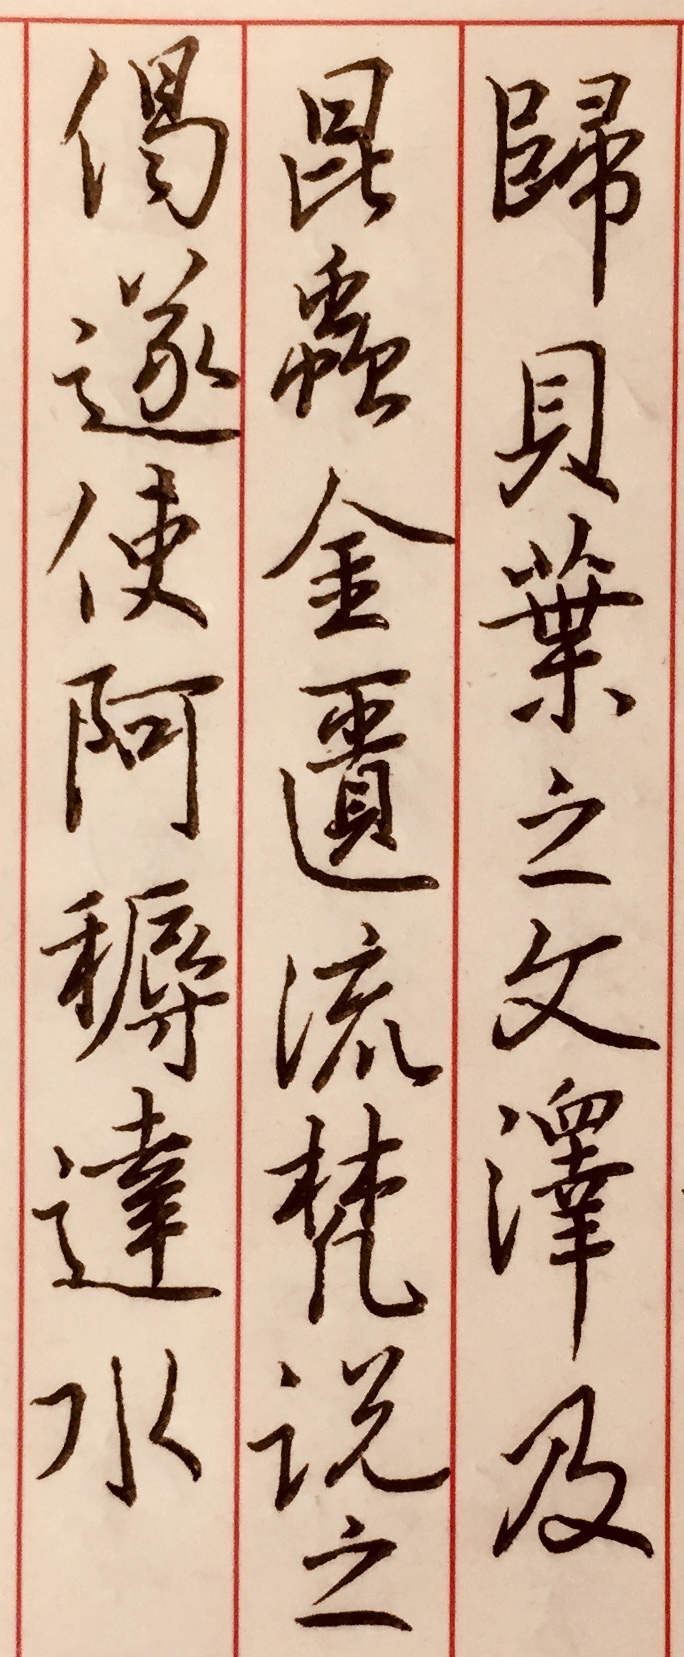 歸貝葉之文澤及
昆蟲金匱流梵説之
偈遂使阿耨達水